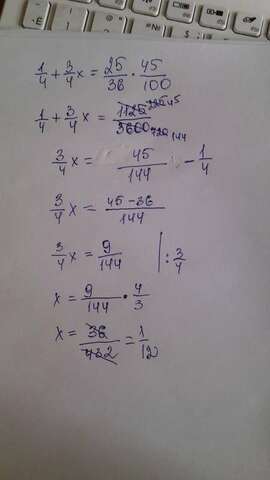 1/4 + 3/4 x = 25/36 · 45/100
1/4 + 3/4 x = 1125/3600 225/720 45/144
3/4 x = 45/144 - 1/4
3/4 x = 45-36/144
3/4 x = 9/144 | : 3/4
x = 9/144 · 4/3
x = 36/432 = 1/12